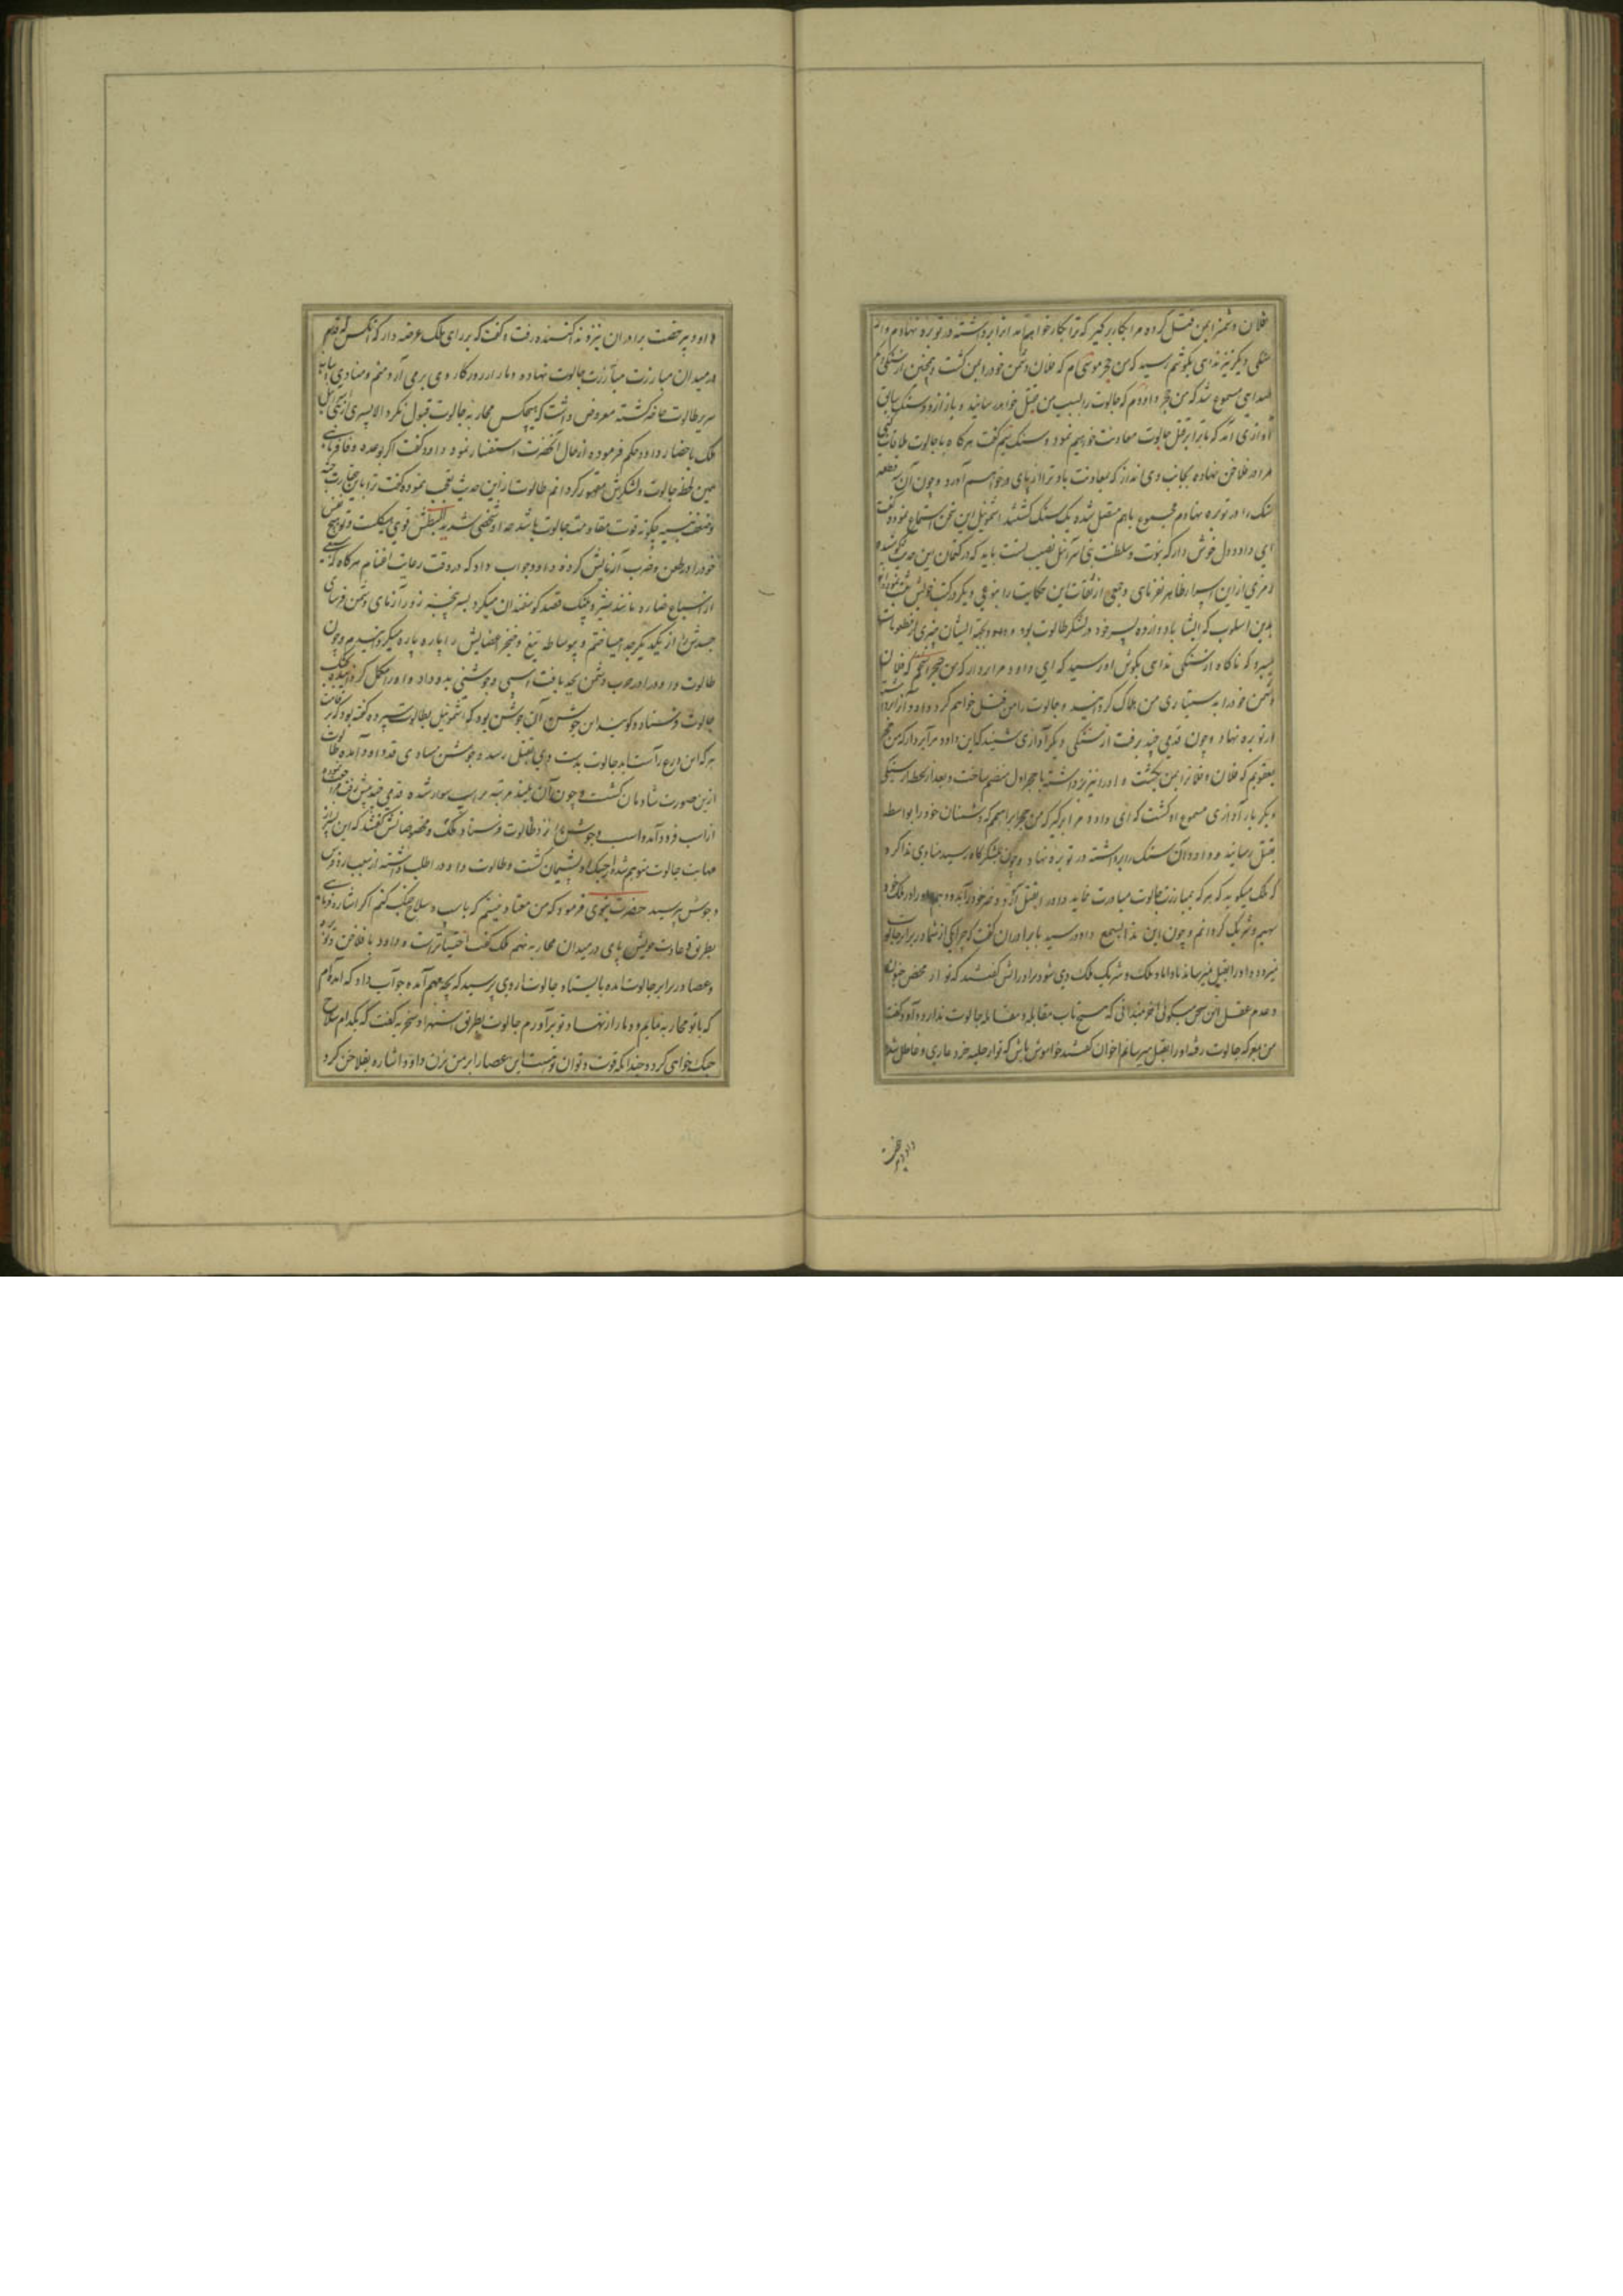 فلان دشمن را بمن قتل کرده مرا بکار برگیر که ترا بکار خواهم آمد آنرا برداشته در توبره نهادم و از
سنکی دیگر نیز ندای بگوشم رسید که من حجر موسی ام که فلان دشمن خود را بمن کشت و همچنین از سنکی
صدایی مسموع شد که من حجر داودم که جالوت را بسبب من بقتل خواهد رسانید و باز از دو سنک بیابان
آوازی آمد که ما ترا بر قتل جالوت معاونت خواهیم نمود و سنک نیم گفت هرگاه با جالوت ملاقات کنی
مرا در فلاخن نهاده بجانب وی انداز که بمعاونت باد ترا از پای در خواهم آورد و چون آن سه قطعه
سنک را در توبره نهادم مجموع باهم متصل شده یک سنک گشتند اشموئیل این سخن استماع نموده گفت
ای داود دل خوش دار که نبوت و سلطنت بنی اسرائیل نصیب تست باید که در کتمان این حدیث کوشیده
رمزی از این اسرار ظاهر نفرمای و جمعی از ثقات این حکایت را بنوعی دیگر در کتب خویش ثبت نموده اند
بدین اسلوب که ایشا با دوازده پسر خود در لشکر طالوت بود و داود بجهة ایشان چیزی از مطعومات
میبرد که ناگاه از سنکی ندای بگوش او رسید که ای داود مرا بردار که من حجر اسحقم که فلان
دشمن خود را به دستیاری من هلاک گردانید و جالوت را من قتل خواهم کرد داود آنرا برداشته
در توبره نهاد و چون قدمی چند برفت از سنکی دیگر آوازی شنید که ای داود مرا بردار که من حجر
یعقوبم که فلان و فلانرا بمن بکشت داود آنرا نیز برداشته با حجر اول منضم ساخت و بعد از لحظه از سنکی
دیگر بار آوازی مسموع او گشت که ای داود مرا برگیر که من حجر ابراهیمم که دشمنان خود را بواسطه
بقتل رسانید و داود آن سنک را برداشته در توبره نهاد و چون بلشکرگاه رسید منادی ندا کرد
که ملک میگوید که هر که بمبارزت جالوت مبادرت نماید و او را بقتل آرد دختر خود را بدو دهم و او را در ملک خود
سهیم و شریک گردانم و چون این ندا بسمع داود رسید با برادران گفت که چرا یکی از شما در برابر جالوت
نمیرود و او را بقتل نمیرساند تا داماد ملک و شریک ملک وی شود برادرانش گفتند که تو از محض جنون
و عدم عقل این سخن میگوئی آخر نمیدانی که هیچ تاب مقابله و مقاتله جالوت ندارد داود گفت
من میروم که جالوت رفته او را بقتل میرسانم اخوان گفتند خاموش باش که تو از حلیه خرد عاری و عاطل
داود بی رخصت
داود بی رخصت برادران نیز نزد ندا کننده رفت و گفت که بر رای ملک عرضه دار که آنکس که قدم
در میدان مبارزت جالوت نهاده و دمار از روزگار وی برمی آرد منم و منادی بپایه
سریر طالوت حاضر گشته معروض داشت که هیچکس محاربه جالوت قبول نکرد الا پسری از بنی اسرائیل
ملک باحضار داود حکم فرموده از حال آنحضرت استفسار نمود داود گفت اگر بوعده وفا فرمائی
همین لحظه جالوت و لشکرش مقهور گردانم طالوت از این حدیث تعجب نموده گفت ترا باین حقارت جثه
و ضعف بنیه چگونه قوت مقاومت جالوت باشد چه او شخصی شدید البطش قوی هیکلست و تو هیچ نفس
خود را در طعن و ضرب آزمایش کرده داود جواب داد که در وقت رعایت اغنام هرگاه که
از سباع ضاره مانند شیر و پلنک قصد گوسفندان میکرد بسرپنجه زورآزمای دشمن فرسای
جسدش از یکدیگر جدا میساختم و بی وساطه تیغ و خنجر اعضایش را پاره پاره میگردانیدم چون
طالوت داود را در حرب دشمن بجد یافت اسبی و جوشنی بدو داد و او را مکمل گردانیده بجنک
جالوت فرستاد و گویند این جوشن آن جوشن بود که اشموئیل بطالوت سپرده گفته بود که بر قامت
هر که این درع راست آید جالوت بدست وی بقتل رسد و جوشن مساوی قد داود آمده طالوت
ازین صورت شادمان گشت و چون آن بلند مرتبه بر اسب سوار شده قدمی چند پیش رفت مراجعت نموده
از اسب فرود آمد و اسب و جوشن را نزد طالوت فرستاد ملک و مخصوصانش گفتند که این پسر از
مهابت جالوت متوهم شده از جنک او پشیمان گشت و طالوت داود را طلب داشته از سبب رد فرس
و جوشن پرسید حضرت نبوی فرمود که من معتاد نیستم که با اسب و سلاح جنک کنم اگر اشاره فرمائی
بطریق عادت خویش پای در میدان محاربه نهم ملک گفت اختیار تراست و داود با فلاخن و توبره
و عصا در برابر جالوت آمده بایستاد جالوت از وی پرسید که بچه مهم آمده جواب داد که آمده ام
که با تو محاربه نمایم و دمار از نهاد تو برآورم جالوت بطریق استهزا و سخریه گفت که بکدام سلاح
جنک خواهی کرد و چندانکه قوت و توان تست این عصا را بر من بزن داود اشاره بفلاخن کرد